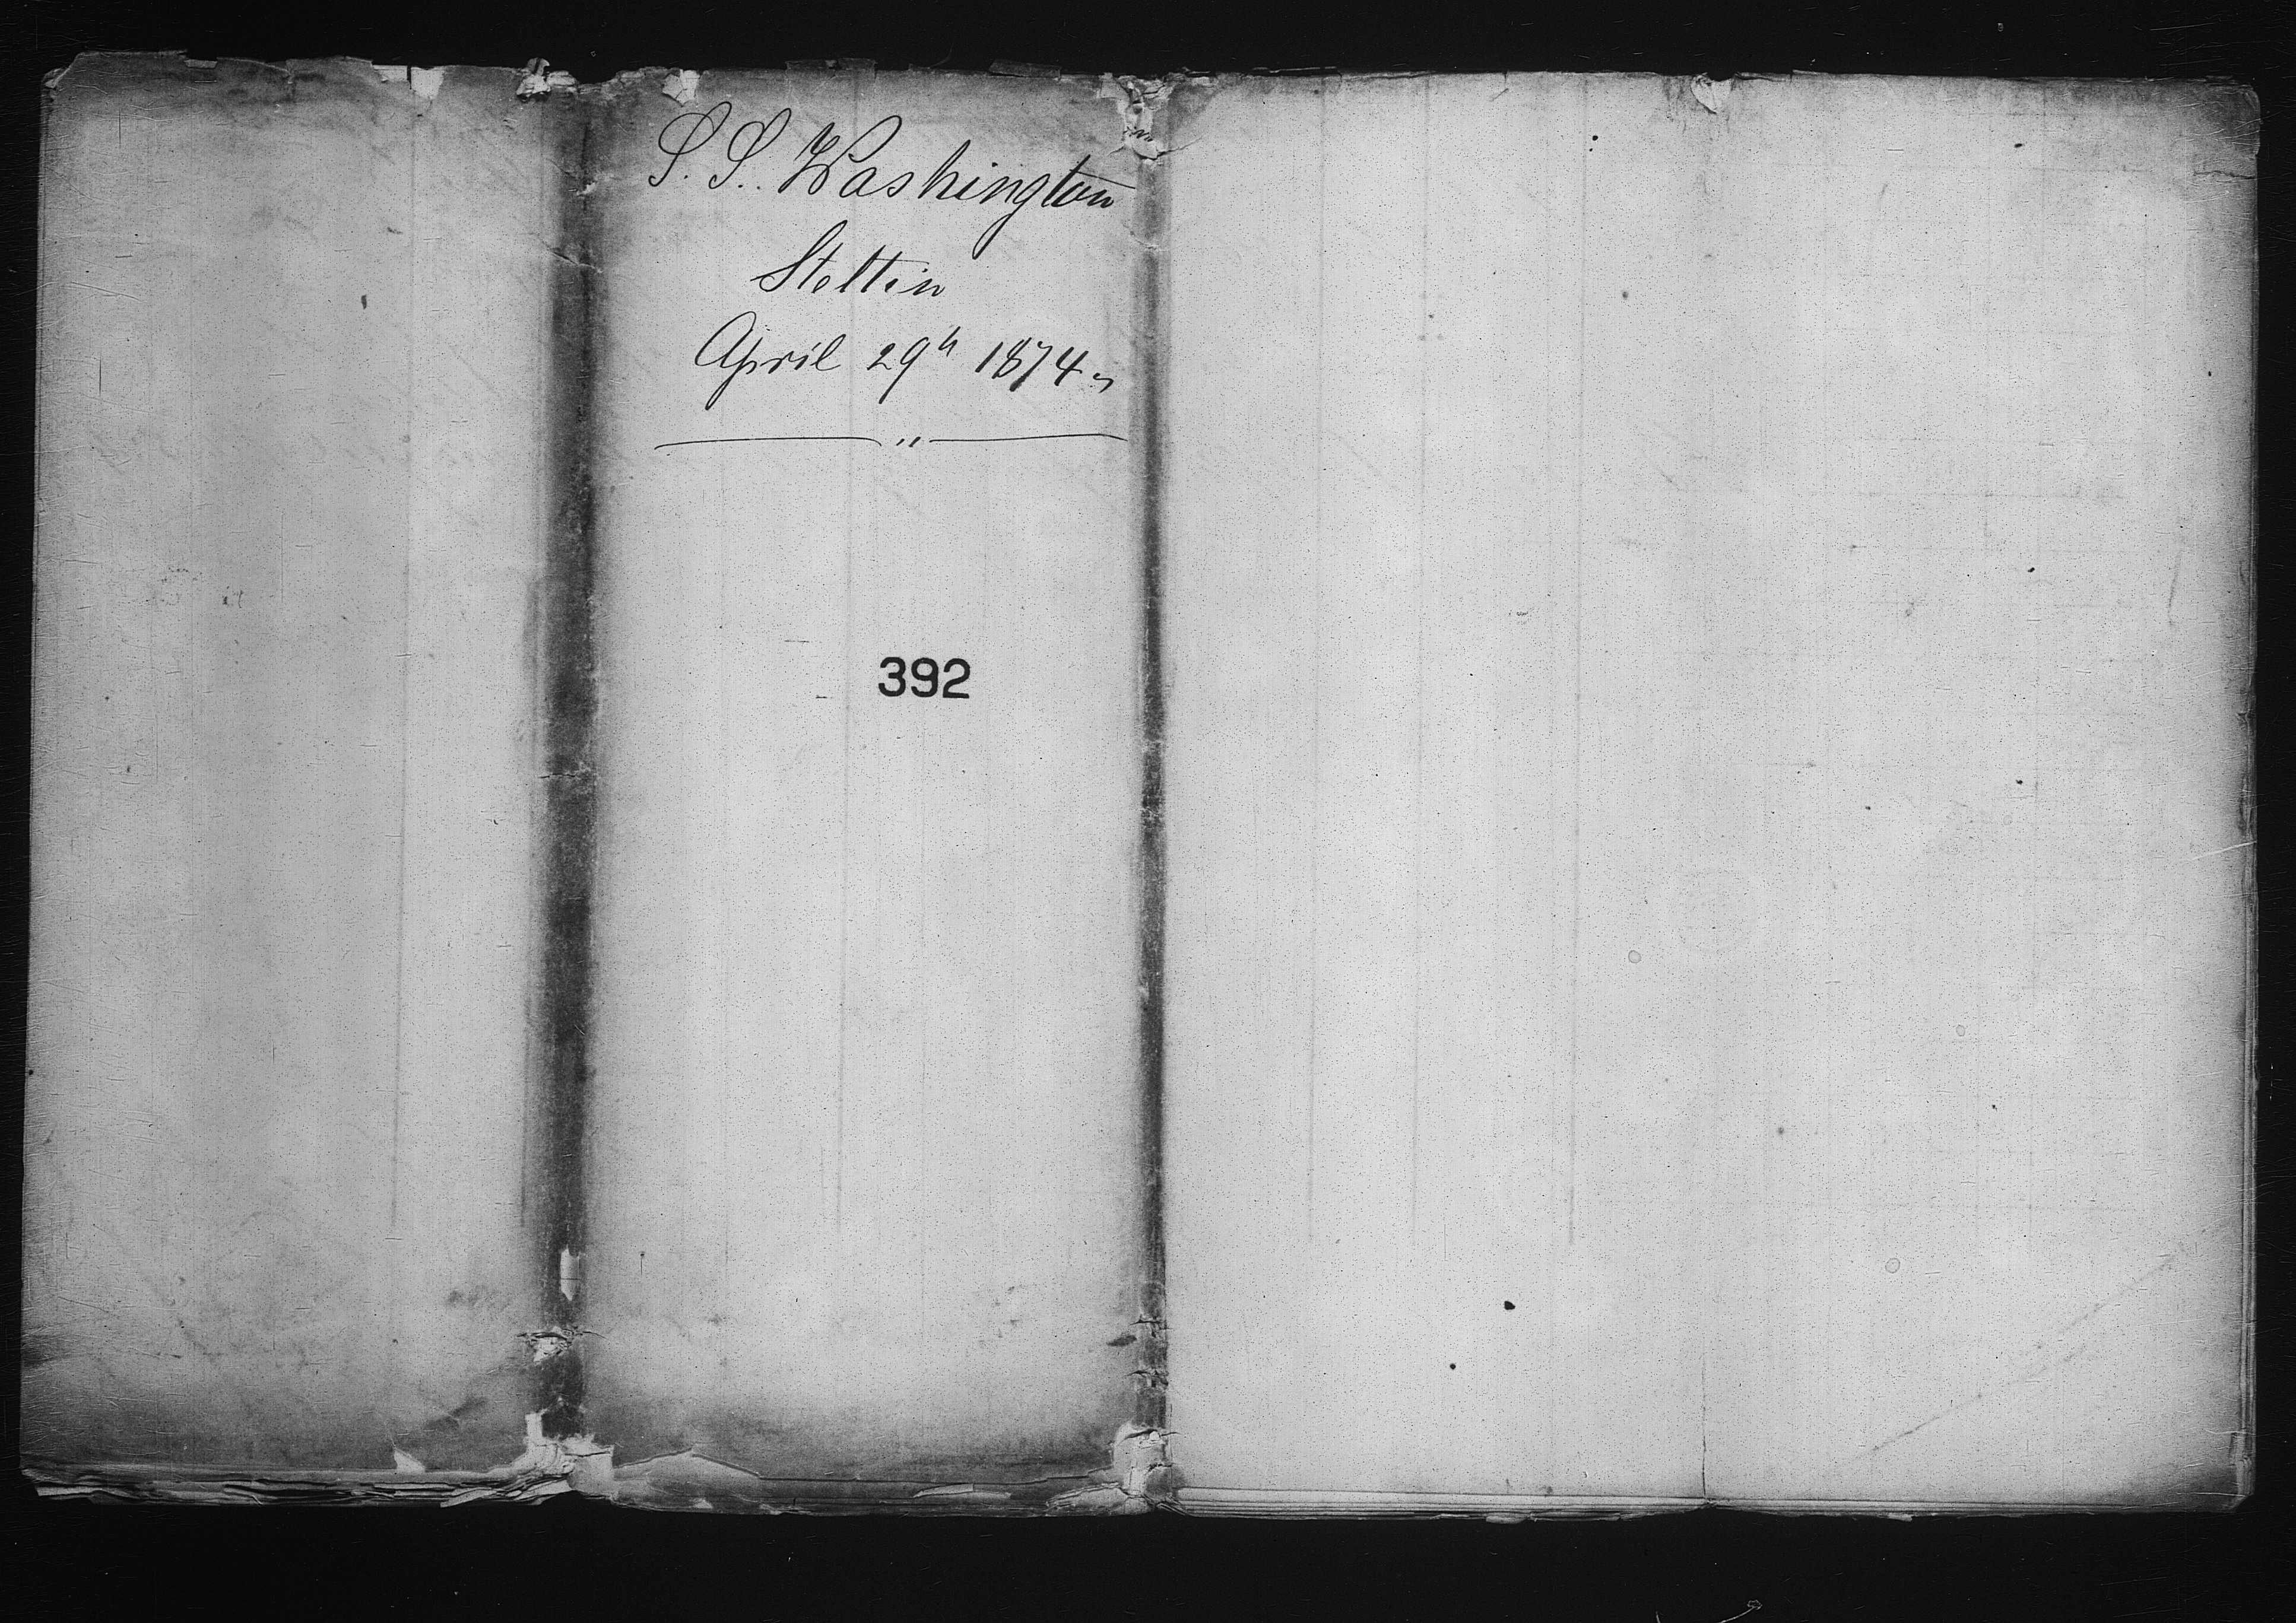 S. S. Washington
Stettin
April 29th 1874
392